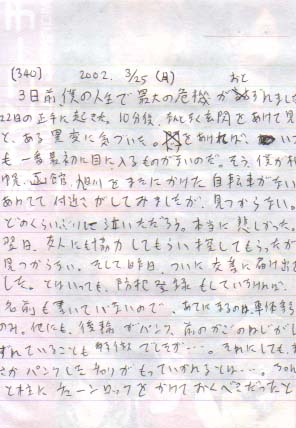 [340] 2002. 3/25 (月)
3日前、僕の人生で最大の危機がおとずれました
22日の正午に起きた。10分後、何となく玄関をあけて見
と、ある異変に気づいた。をあければ、いつ
も一番最初に目に入るものがないのだ。そう、僕が札
幌、函館、旭川をまたにかけた自転車がない
あわてて付近をさがしてみましたが、見つからない。
どのくらい泣いただろう。本当に悲しかった。
翌日、友人にも協力してもらい探してもらったが
見つからない。そして昨日、ついに交番に届け出
した。とはいっても、防犯登録もしていなければ、
名前も書いていないので、あてになるのは車体番号
のみ。他にも、後輪がパンク、前のかごのねじがし
ずれていることも でしたが…。それにしても、ま
さかパンクしたチャリがもっていかれるとは…。
と柱にチェーンロックをかけておくべきだったと